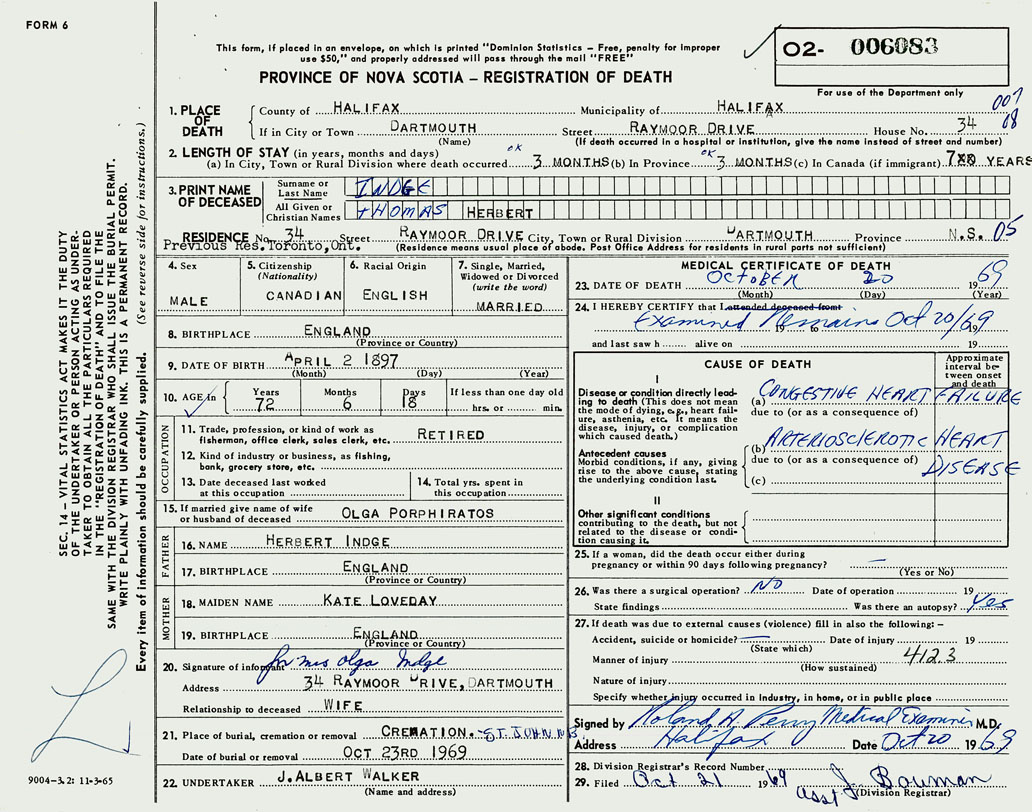 FORM 6
This form, if placed in an envelope, on which is printed "Dominion Statistics – Free, penalty for improper
use $50," and properly addressed will pass through the mail "FREE"
PROVINCE OF NOVA SCOTIA – REGISTRATION OF DEATH
02- 006083
For use of the Department only
SEC. 14 – VITAL STATISTICS ACT MAKES IT THE DUTY
OF THE UNDERTAKER OR PERSON ACTING AS UNDER-
TAKER TO OBTAIN ALL THE PARTICULARS REQUIRED
IN THE "REGISTRATION OF DEATH" AND TO FILE THE
SAME WITH THE DIVISION REGISTRAR WHO SHALL ISSUE THE BURIAL PERMIT.
WRITE PLAINLY WITH UNFADING INK. THIS IS A PERMANENT RECORD.
Every item of information should be carefully supplied. (See reverse side for instructions.)
1. PLACE OF DEATH
County of HALIFAX Municipality of HALIFAX 007
If in City or Town DARTMOUTH Street RAYMOOR DRIVE House No. 34 08
(Name) (If death occurred in a hospital or institution, give the name instead of street and number)
2. LENGTH OF STAY (in years, months and days) ok ok
(a) In City, Town or Rural Division where death occurred 3 MONTHS (b) In Province 3 MONTHS (c) In Canada (if immigrant) YEARS
3. PRINT NAME OF DECEASED
Surname or Last Name INDGE
All Given or Christian Names THOMAS HERBERT
RESIDENCE No. 34 Street RAYMOOR DRIVE City, Town or Rural Division DARTMOUTH Province N.S. 05
Previous Res. Toronto, Ont. (Residence means usual place of abode. Post Office Address for residents in rural parts not sufficient)
4. Sex
MALE
5. Citizenship
(Nationality)
CANADIAN
6. Racial Origin
ENGLISH
7. Single, Married,
Widowed or Divorced
(write the word)
MARRIED
8. BIRTHPLACE ENGLAND
(Province or Country)
9. DATE OF BIRTH APRIL 2 1897
(Month) (Day) (Year)
10. AGE in Years Months Days If less than one day old
72 6 18 hrs. or min.
OCCUPATION
11. Trade, profession, or kind of work as
fisherman, office clerk, sales clerk, etc. RETIRED
12. Kind of industry or business, as fishing,
bank, grocery store, etc.
13. Date deceased last worked
at this occupation
14. Total yrs. spent in
this occupation
15. If married give name of wife
or husband of deceased OLGA PORPHIRATOS
FATHER
16. NAME HERBERT INDGE
17. BIRTHPLACE ENGLAND
(Province or Country)
MOTHER
18. MAIDEN NAME KATE LOVEDAY
19. BIRTHPLACE ENGLAND
(Province or Country)
20. Signature of informant for mrs olga Indge
Address 34 RAYMOOR DRIVE, DARTMOUTH
Relationship to deceased WIFE
21. Place of burial, cremation or removal CREMATION. - ST. JOHN N B
Date of burial or removal OCT 23RD 1969
22. UNDERTAKER J. ALBERT WALKER
(Name and address)
9004-3.2: 11-3-65
MEDICAL CERTIFICATE OF DEATH
23. DATE OF DEATH OCTOBER 20 1969
(Month) (Day) (Year)
24. I HEREBY CERTIFY that I attended deceased from
Examined Remains Oct 20/69
19 6 19
and last saw h alive on 19
CAUSE OF DEATH
Approximate
interval be-
tween onset
and death
I
Disease or condition directly lead-
ing to death (This does not mean
the mode of dying, e.g., heart fail-
ure, asthenia, etc. It means the
disease, injury, or complication
which caused death.)
(a) CONGESTIVE HEART FAILURE
due to (or as a consequence of)
Antecedent causes
Morbid conditions, if any, giving
rise to the above cause, stating
the underlying condition last.
(b) ARTERIOSCLEROTIC HEART
due to (or as a consequence of) DISEASE
(c)
II
Other significant conditions
contributing to the death, but not
related to the disease or condi-
tion causing it.
25. If a woman, did the death occur either during
pregnancy or within 90 days following pregnancy? —
(Yes or No)
26. Was there a surgical operation? NO Date of operation 19
State findings Was there an autopsy? Yes
27. If death was due to external causes (violence) fill in also the following: –
Accident, suicide or homicide? — Date of injury 19
(State which)
Manner of injury 412.3
(How sustained)
Nature of injury
Specify whether injury occurred in industry, in home, or in public place
Signed by Roland A. Perry Medical Examiner M.D.
Address Halifax Date Oct 20 1969
28. Division Registrar's Record Number
29. Filed Oct 21 1969 asst J. Bowman
(Division Registrar)